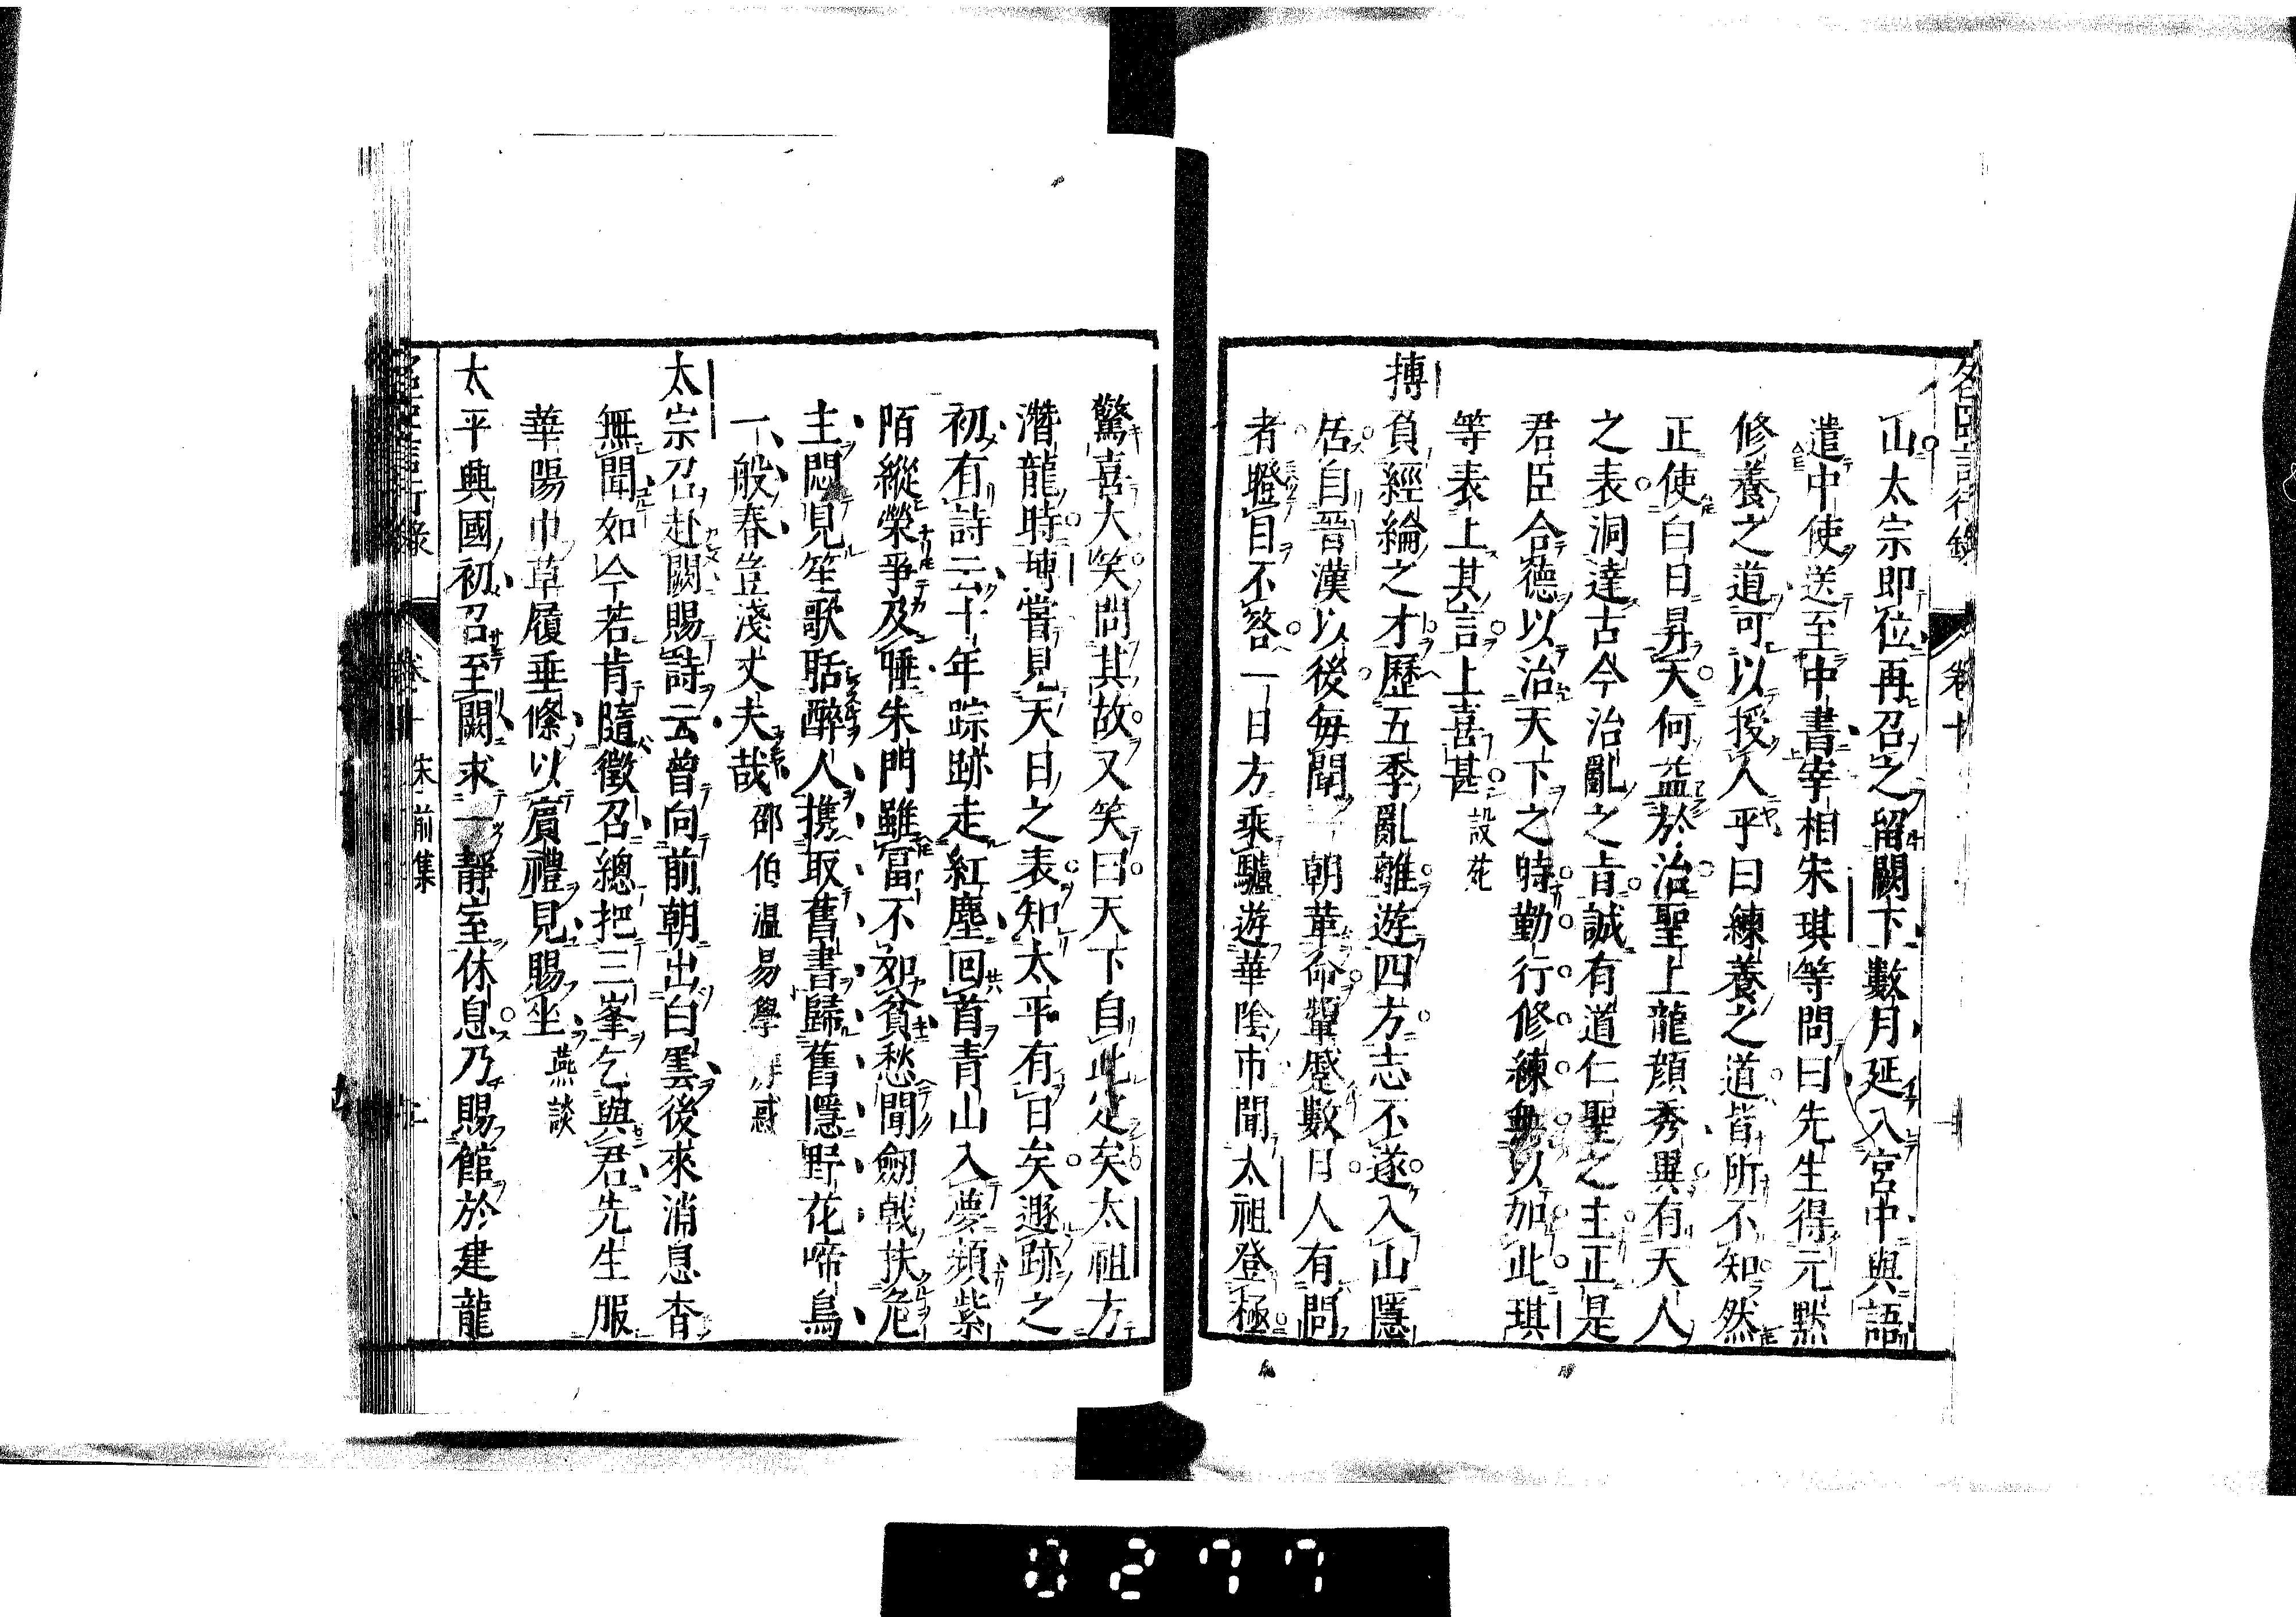 名臣言行錄 卷十
山太宗即位再召之留闕下數月延入宮中與語
遣中使送至中書宰相宋琪等問曰先生得元默
修養之道可以授人乎曰練養之道皆所不知然
正使白日昇天何益於治聖上龍顏秀異有天人
之表洞達古今治亂之旨誠有道仁聖之主正是
君臣合德以治天下之時勤行修練無以加此琪
等表上其言上喜甚 談苑
摶負經綸之才歷五季亂離遊四方志不遂入山隱
居自晉漢以後每聞一朝革命顰蹙數日人有問
者瞪目不答一日方乘驢遊華陰市聞太祖登極
驚喜大笑問其故又笑曰天下自此定矣太祖方
潛龍時摶嘗見天日之表知太平有日矣遯跡之
初有詩云十年踪跡走紅塵回首青山入夢頻紫
陌縱榮爭及睡朱門雖富不如貧愁聞劒戟扶危
主悶見笙歌聒醉人携取舊書歸舊隱野花啼鳥
一般春豈淺丈夫哉 邵伯溫易學辨惑
太宗召赴闕賜詩云曾向前朝出白雲後來消息杳
無聞如今若肯隨徵召總把三峯乞與君先生服
華陽巾草履垂絛以賓禮見賜坐 燕談
太平興國初召至闕求一靜室休息乃賜館於建龍
名臣言行錄 卷十 宋前集
0277